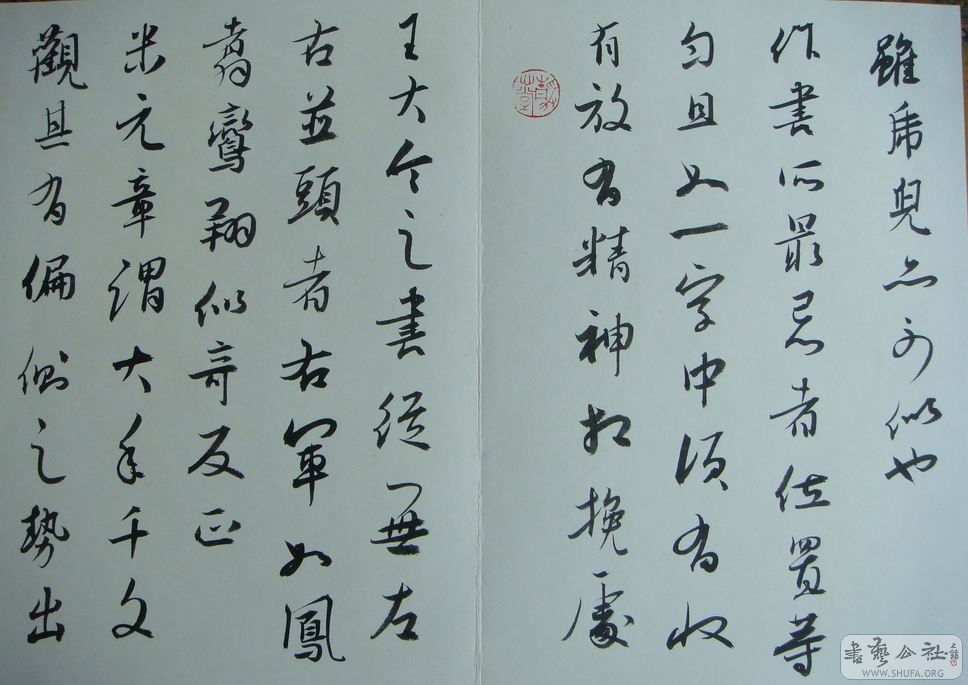 雖虎兒亦不似也
作書所最忌者位置等
勻且如一字中須有收
有放有精神相挽處
王大令之書從無左
右並頭者右軍如鳳
翥鸞翔似奇反正
米元章謂大年千文
觀其有偏側之勢出
書藝公社
WWW.SHUFA.ORG